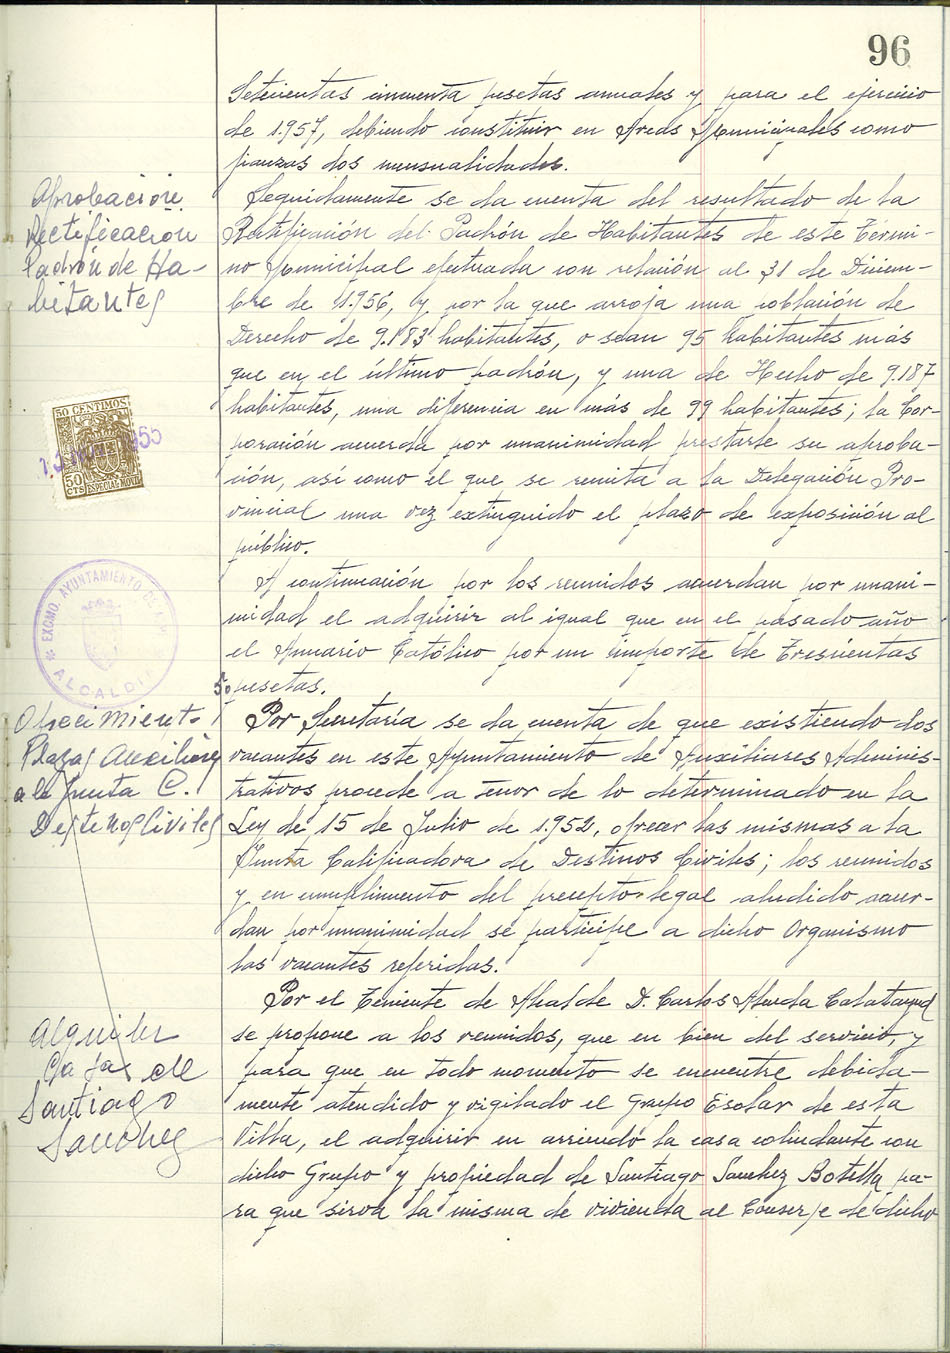 96
Setecientas cincuenta pesetas anuales y para el ejercicio
de 1.957, debiendo constituir en Arcas Municipales como
fianzas dos mensualidades.
Aprobación
Rectificación
Padrón de Ha-
bitantes
Seguidamente se da cuenta del resultado de la
Rectificación del Padrón de Habitantes de este Térmi-
no Municipal efectuada con relación al 31 de Diciem-
bre de 1.956, y por la que arroja una población de
Derecho de 9.183 habitantes, o sean 95 habitantes más
que en el último padrón, y una de Hecho de 9.187
habitantes, una diferencia en más de 99 habitantes; la Cor-
poración acuerda por unanimidad prestarle su aproba-
ción, así como el que se remita a la Delegación Pro-
vincial una vez extinguido el plazo de exposición al
público.
50 CENTIMOS
50
CTS
ESPECIAL MOVIL
A continuación por los reunidos acuerdan por unani-
midad el adquirir al igual que en el pasado año
el Anuario Católico por un importe de Trescientas
50 pesetas.
EXCMO. AYUNTAMIENTO DE
ALCALDIA
Ofrecimiento
Plazas Auxiliares
a la Junta C.
Destinos Civiles
Por Secretaría se da cuenta de que existiendo dos
vacantes en este Ayuntamiento de Auxiliares Adminis-
trativos procede a tenor de lo determinado en la
Ley de 15 de Julio de 1.952, ofrecer las mismas a la
Junta Calificadora de Destinos Civiles; los reunidos
y en cumplimiento del precepto legal aludido acuer-
dan por unanimidad se participe a dicho Organismo
las vacantes referidas.
Alquiler
Cajas de
Santiago
Sanchez
Por el Teniente de Alcalde D. Carlos Calatayud
se propone a los reunidos, que en bien del servicio, y
para que en todo momento se encuentre debida-
mente atendido y vigilado el Grupo Escolar de esta
Villa, el adquirir en arriendo la casa colindante con
dicho Grupo y propiedad de Santiago Sanchez Botella pa-
ra que sirva la misma de vivienda al Conserje de dicho